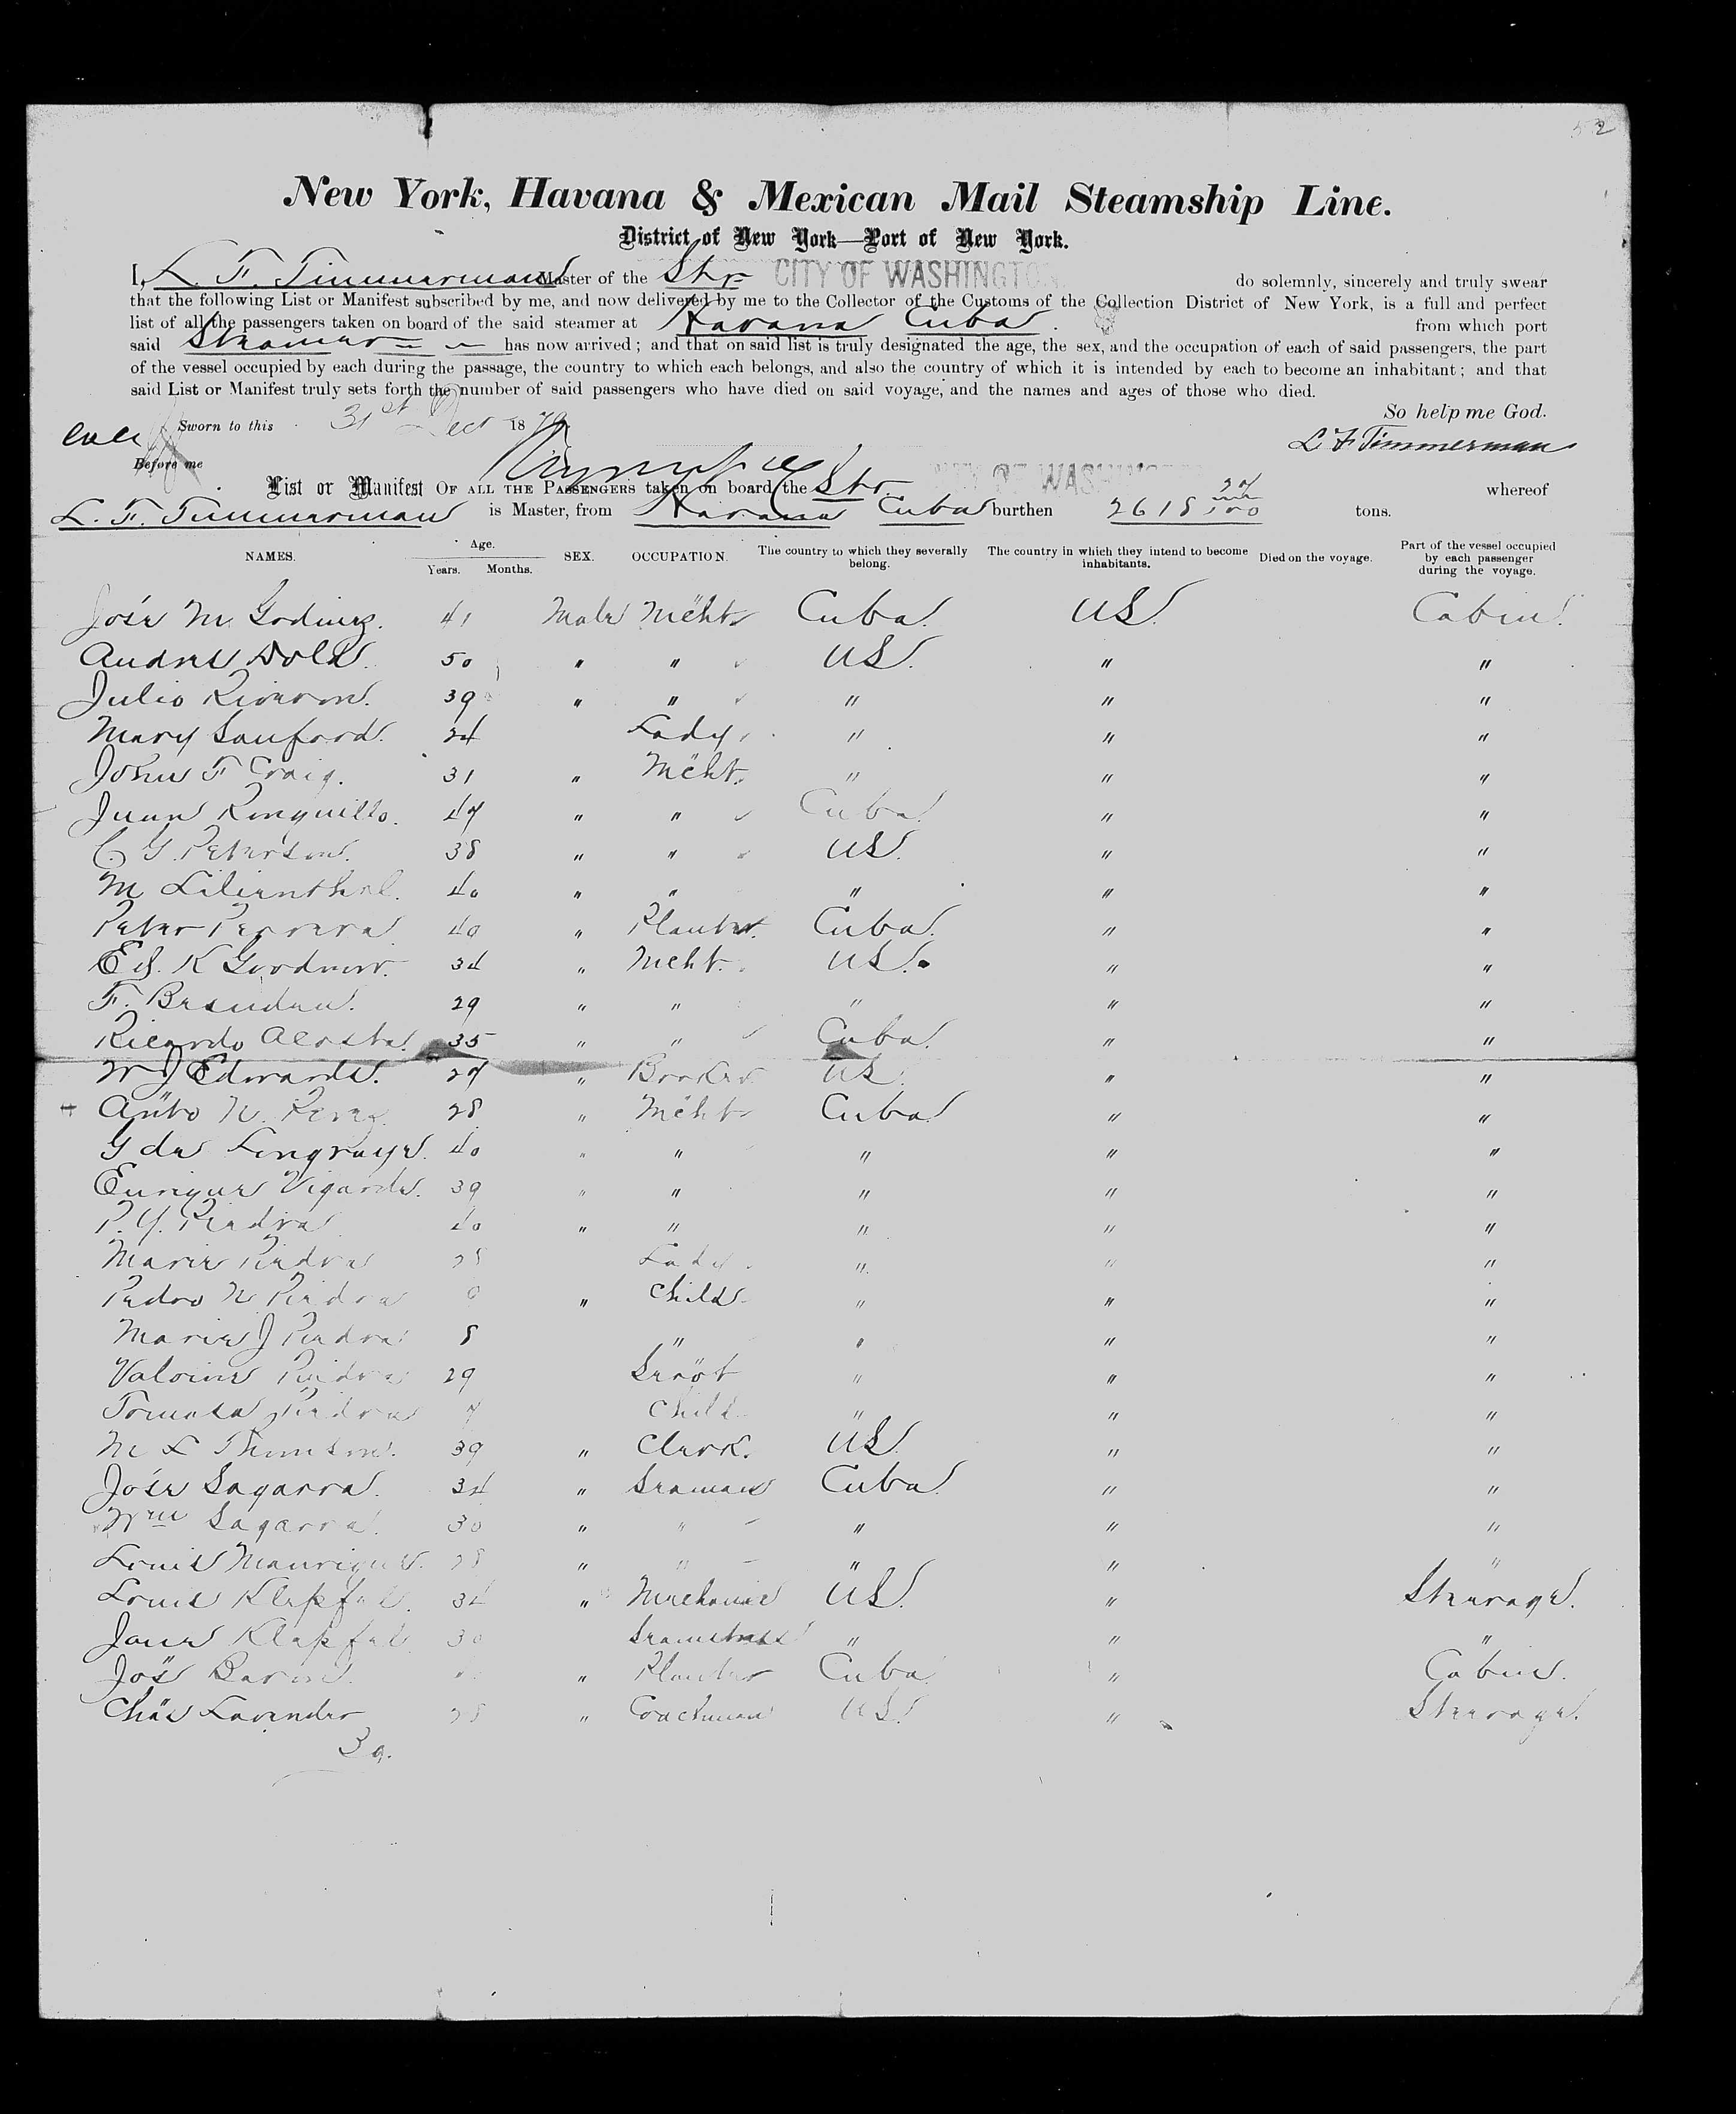 52
New York, Havana & Mexican Mail Steamship Line.
District of New York—Port of New York.
I, L. F. Timmerman Master of the Str CITY OF WASHINGTON do solemnly, sincerely and truly swear
that the following List or Manifest subscribed by me, and now delivered by me to the Collector of the Customs of the Collection District of New York, is a full and perfect
list of all the passengers taken on board of the said steamer at Havana Cuba. from which port
said Steamer has now arrived; and that on said list is truly designated the age, the sex, and the occupation of each of said passengers, the part
of the vessel occupied by each during the passage, the country to which each belongs, and also the country of which it is intended by each to become an inhabitant; and that
said List or Manifest truly sets forth the number of said passengers who have died on said voyage, and the names and ages of those who died.
So help me God.
Sworn to this 31st Dec 1879 L F Timmerman
Before me
List or Manifest OF ALL THE PASSENGERS taken on board the Str. CITY OF WASHINGTON whereof
L. F. Timmerman is Master, from Havana Cuba burthen 2618 tons.
NAMES. Age. Years. Months. SEX. OCCUPATION. The country to which they severally belong. The country in which they intend to become inhabitants. Died on the voyage. Part of the vessel occupied by each passenger during the voyage.
José M Godinez. 41 Male Mcht Cuba. US. Cabin.
Andres Dold. 50 " " US. " "
Julio " " " " "
Mary Sanford. 24 Lady " " "
John F Craig. 31 " Mcht. " " "
Juan Ronquillo. 47 " " Cuba " "
C. G. Peterson. 38 " " US. " "
M Lilienthal. 40 " " " " "
Peter 40 " Planter. Cuba. " "
Ed. K 34 " Mcht. US. " "
F. 29 " " " " "
Ricardo Acosta. 35 " " Cuba. " "
W J Edwards. 27 " Broker US. " "
Anto N. Perez. 28 " Mcht Cuba " "
G de 40 " " " " "
Enrique 39 " " " " "
P. Y. Piedra 40 " " " " "
Maria Piedra 28 Lady. " " "
Pedro N Piedra " Child " " "
Maria J Piedra 8 " " " "
Piedra 29 Servt " " "
Tomasa Piedra 7 Child " " "
M L Thomson. 39 " Clerk. US. " "
José Sagarra. 34 " Seaman Cuba " "
Wm Sagarra. 30 " " " " "
Louis Manrique. 28 " " " " "
Louis 34 " Mechanic US. " Steerage.
Jane 30 Seamstress " " "
Jos " Planter Cuba " Cabin.
Chas Lavender 28 " Coachman US. " Steerage.
30.